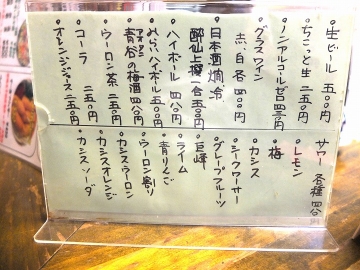 生ビール 五〇〇円
ちょこっと生 二五〇円
ノンアルコールゼロ 四三〇円
グラスワイン
赤、白 各四〇〇円
日本酒 燗、冷
上撰 一合 五〇〇円
ハイボール 四八〇円
みぃらハイボール 五〇〇円
青谷の梅酒 四八〇円
ウーロン茶 二五〇円
コーラ 二五〇円
オレンジジュース 二五〇円
サワー 各種 四八〇円
レモン
梅
カシス
シークワーサー
グレープフルーツ
巨峰
ライム
青りんご
ウーロン割り
カシスウーロン
カシスオレンジ
カシスソーダ